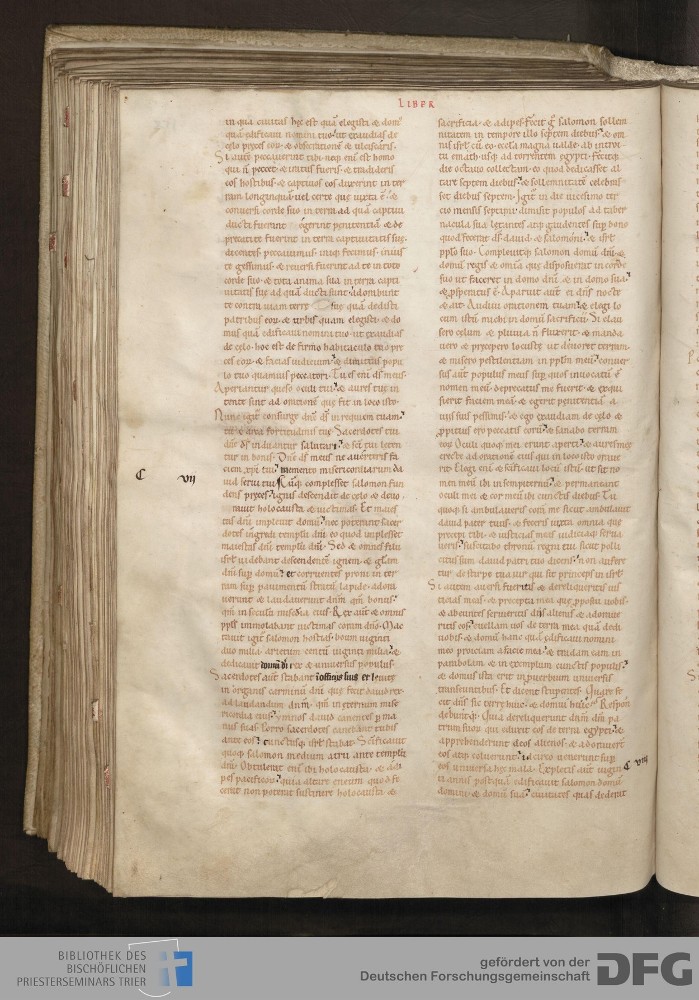 LIBER
in qua ciuitas hęc est quā elegisti & dom᷒
quā ędificaui nomini tuo. ut exaudias de
cęlo pręces eoꝝ & obsecrationē & ulciscaris.
Si autē peccauerint tibi. neq; enī est homo
qui ñ peccet & iratus fueris & tradideris
eos hostibus. & captiuos eos duxerint in ter
ram longinquā uel certe quę iuxta ē. &
conuersi corde suo in terra ad quā captiui
ducti fuerint egerint penitentiā & de
precati te fuerint in terra captiuitatis suę
dicentes peccauimus iniq; fecimus. inius
te gessimus. & reuersi fuerint ad te in toto
corde suo. & tota anima sua in terra capti
uitatis suę ad quā ducti sunt. adorabunt
te contra uiam terrę suę quā dedisti
patribus eoꝝ & urbis quam elegisti. & do
mus quā edificaui nomini tuo. ut exaudias
de cęlo. hoc est de firmo habitaculo tuo prę
ces eoꝝ. & facias iudicium. & dimittas popu
lo tuo quamuis peccatori. Tu es enī ds̄ meus.
Aperiantur queso oculi tui. & aures tuę in
tentę sint ad orationē quę fit in loco isto.
Nunc igit̄ consurge dn̄e ds̄ in requiem tuam.
tu & arca fortitudinis tuę. Sacerdotes tui
dn̄e ds̄ induantur salutari. & sc̄i tui lęten
tur in bonis. Dn̄e ds̄ meus ne auerteris fa
ciem xp̄i tui. memento misericordiarum da
uid serui tui. Cūq; complesset salomon fun
C VII
dens pręces. ignis descendit de cęlo & deuo
rauit holocausta & uictimas. Et maies
tas dn̄i impleuit domū. nec poterant sacer
dotes ingredi templū dn̄i. eo quod implesset
maiestas dn̄i templū dn̄i. Sed & omnes filii
isrl̄ uidebant descendentē ignem. & gl̄am
dn̄i sup̄ domū. et corruentes proni in ter
ram sup̄ pauimentū stratū lapide. adora
uerunt & laudauerunt dn̄m. qm̄ bonus.
qm̄ in sęcula mis̄cdia eius. Rex aut̄ & omnis
ppl̄s immolabant uictimas coram dn̄o. Mac
tauit igit̄ salomon hostias. boum uiginti
duo milia. arietum centū uiginti milia. &
dedicauit domū dī rex & uniuersus populus.
Sacerdotes aut̄ stabant ī officiis suis et leuitę
in organis carminū dn̄i. quę fecit dauid rex
ad laudandum dn̄m. qm̄ in ęternum mise
ricordia eius. hymnos dauid canentes ꝑ ma
nus suas. Porro sacerdotes canebant tubis
ante eos. cunctusq; isrl̄ stabat. Sc̄ificauit
quoq; salomon medium atrii ante templū
dn̄i. Obtulerat enī ibi holocausta. & adi
pes pacificoꝝ. quia altare ęneum quod fe
cerat non poterat sustinere holocausta &
sacrificia & adipes. Fecit g̊ salomon sollem
nitatem in tempore illo septem diebus. & om
nis isrl̄ cū eo. ęccl̄a magna ualde. ab introi
tu emath. usq; ad torrentem egypti. Fecitq;
die octauo collectam. eo quod dedicasset al
tare septem diebus. & sollemnitatē celebras
set diebus septem. Igit̄ in die uicesimo ter
cio mensis septimi. dimisit populos ad taber
nacula sua lętantes atq; gaudentes sup̄ bono
quod fecerat ds̄ dauid. & salomoni. & isrl̄
pplo suo. Compleuitq; salomon domū dn̄i &
domū regis. & omnia quę disposuerat in corde
suo ut faceret in domo dn̄i. & in domo sua.
& ꝓsperatus ē. Apparuit aut̄ ei dn̄s nocte
& ait. Audiui orationem tuam. & elegi lo
cum istū michi in domū sacrificii. Si clau
sero cęlum & pluuia ñ fluxerit. & manda
uero & pręcepero locustę ut deuoret terram.
& misero pestilentiam in pplm̄ meū. conuer
sus aut̄ populus meus sup̄ quos inuocatū ē
nomen meū. deprecatus me fuerit. & exqui
sierit faciem meā. & egerit penitentiā a
uiis suis pessimis. & ego exaudiam de cęlo &
ꝓpitius ero peccatis eorū. & sanabo terram
eoꝝ. Oculi quoq; mei erunt aperti. & aures meę
erectę ad orationē eius qui in loco isto oraue
rit. Elegi enī & sc̄ificaui locū istū. ut sit no
men meū ibi in sempiternū. & permaneant
oculi mei & cor meū ibi cunctis diebus. Tu
quoq; si ambulaueris corā me sicut ambulauit
dauid pater tuus. & feceris iuxta omnia quę
precepi tibi. & iusticias meas iudiciaq; serua
ueris. suscitabo thronū regni tui sicut polli
citus sum dauid patri tuo dicens. non aufere
tur de stirpe tua uir qui sit princeps in isrl̄.
Si autem auersi fueritis & dereliqueritis ius
ticias meas. & precepta mea quę ꝓposui uobis.
& abeuntes seruieritis diis alienis & adoraue
ritis eos. euellam uos de terra mea quā dedi
uobis. & domū hanc quā ędificaui nomini
meo proiciam a facie mea. & tradam eam in
parabolam & in exemplum cunctis populis.
& domus ista erit in ꝓuerbium uniuersis
transeuntibus. Et dicent stupentes. Quare fe
cit dn̄s sic terrę huic. & domui huic. Respon
debuntq;. Quia dereliquerunt dn̄m dm̄ pa
trum suoꝝ qui eduxit eos de terra egypti. &
apprehenderunt deos alienos. & adorauer̄t
eos atq; coluerunt. idcirco uenerunt sup̄
eos uniuersa hęc mala. Expletis aut̄ uigin
C VIII
ti annis postquā ędificauit salomon domū
domini. & domū suā. ciuitates quas dederat
BIBLIOTHEK DES
BISCHÖFLICHEN
PRIESTERSEMINARS TRIER
gefördert von der
Deutschen Forschungsgemeinschaft
DFG